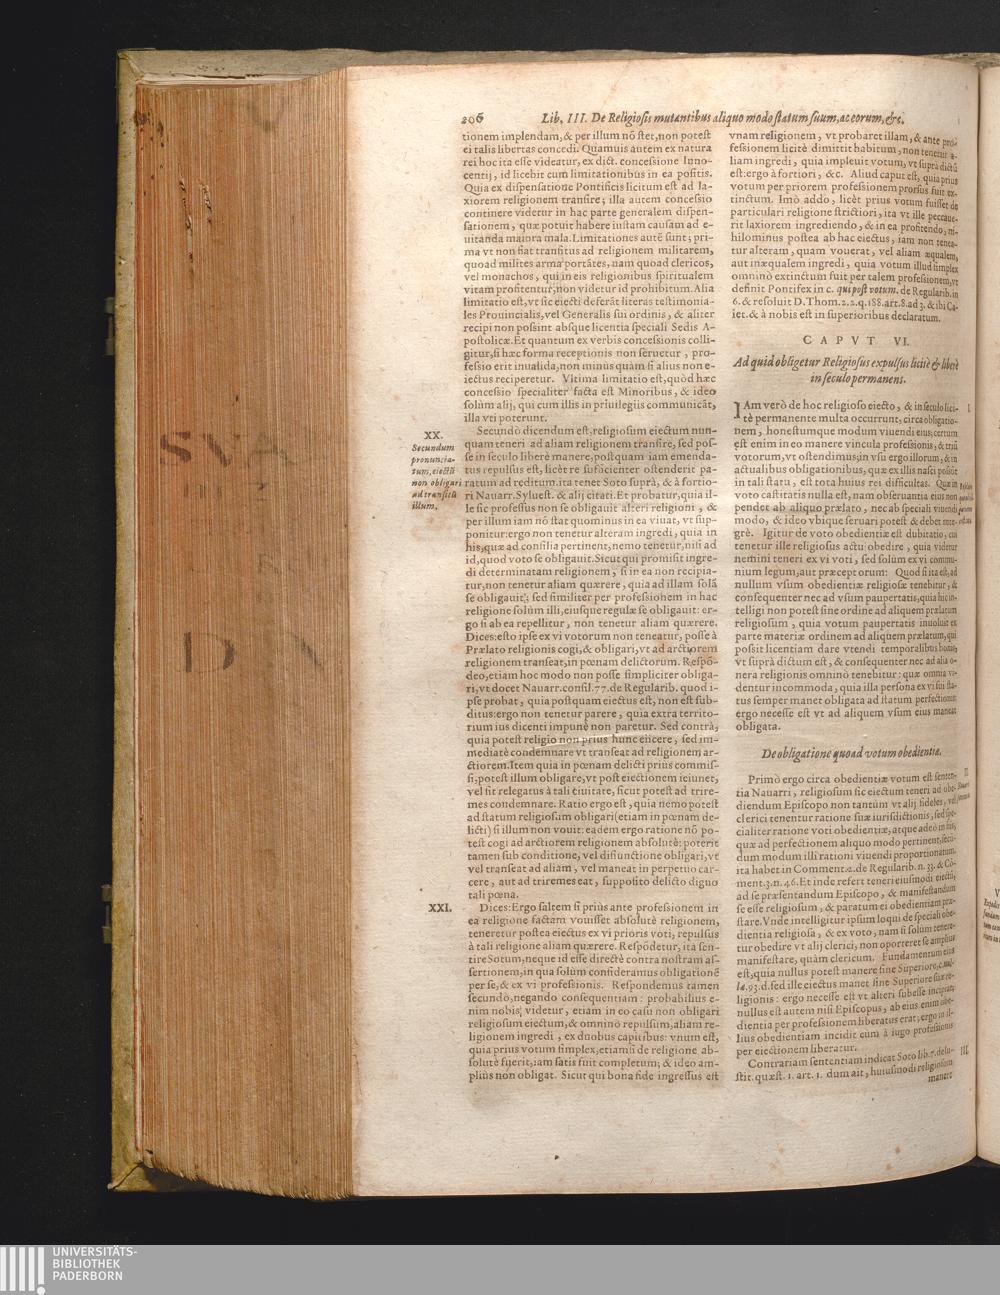 206 Lib. III. De Religiosis mutantibus aliquo modo statum suum, ac eorum, &c.
tionem implendam, & per illum nõ stet, non potest
ei talis libertas concedi. Quamuis autem ex natura
rei hoc ita esse videatur, ex dict. concessione Inno-
centij, id licebit cum limitationibus in ea positis.
Quia ex dispensatione Pontificis licitum est ad la-
xiorem religionem transire; illa autem concessio
continere videtur in hac parte generalem dispen-
sationem, quæ potuit habere iustam causam ad e-
uitanda maiora mala. Limitationes autẽ sunt; pri-
ma vt non fiat transitus ad religionem militarem,
quoad milites arma portãtes, nam quoad clericos,
vel monachos, qui in eis religionibus spiritualem
vitam profitentur, non videtur id prohibitum. Alia
limitatio est, vt sic eiecti deferãt literas testimonia-
les Prouincialis, vel Generalis sui ordinis, & aliter
recipi non possint absque licentia speciali Sedis A-
postolicæ. Et quantum ex verbis concessionis colli-
gitur, si hæc forma receptionis non seruetur, pro-
fessio erit inualida, non minus quàm si alius non e-
iectus reciperetur. Vltima limitatio est, quòd hæc
concessio specialiter facta est Minoribus, & ideo
solùm alij, qui cum illis in priuilegiis communicãt,
illa vti poterunt.
XX.
Secundum
pronuncia-
tum, eiectũ
non obligari
ad transitũ
illum.
Secundò dicendum est, religiosum eiectum nun-
quam teneri ad aliam religionem transire, sed pos-
se in seculo liberè manere, postquam iam emenda-
tus repulsus est, licèt re sufficienter ostenderit pa-
ratum ad reditum. ita tenet Soto suprà, & à fortio-
ri Nauarr. Syluest. & alij citati. Et probatur, quia il-
le sic professus non se obligauit alteri religioni, &
per illum iam nõ stat quominus in ea viuat, vt sup-
ponitur: ergo non tenetur alteram ingredi, quia in
his, quæ ad consilia pertinent, nemo tenetur, nisi ad
id, quod voto se obligauit. Sicut qui promisit ingre-
di determinatam religionem, si in ea non recipia-
tur, non tenetur aliam quærere, quia ad illam solã
se obligauit; sed similiter per professionem in hac
religione solùm illi, eiusque regulæ se obligauit: er-
go si ab ea repellitur, non tenetur aliam quærere.
Dices: esto ipse ex vi votorum non teneatur, posse à
Prælato religionis cogi, & obligari, vt ad arctiorem
religionem transeat, in pœnam delictorum. Respõ-
deo, etiam hoc modo non posse simpliciter obliga-
ri, vt docet Nauarr. consil. 77. de Regularib. quod i-
pse probat, quia postquam eiectus est, non est sub-
ditus: ergo non tenetur parere, quia extra territo-
rium ius dicenti impunè non paretur. Sed contrà,
quia potest religio non prius hunc eiicere, sed im-
mediatè condemnare vt transeat ad religionem ar-
ctiorem. Item quia in pœnam delicti prius commis-
si, potest illum obligare, vt post eiectionem ieiunet,
vel sit relegatus à tali ciuitate, sicut potest ad trire-
mes condemnare. Ratio ergo est, quia nemo potest
ad statum religiosum obligari (etiam in pœnam de-
licti) si illum non vouit: eadem ergo ratione nõ po-
test cogi ad arctiorem religionem absolutè: poterit
tamen sub conditione, vel disiunctione obligari, vt
vel transeat ad aliam, vel maneat in perpetuo car-
cere, aut ad triremes eat, supposito delicto digno
tali pœna.
XXI.
Dices: Ergo saltem si prius ante professionem in
ea religione factam vouisset absolutè religionem,
teneretur postea eiectus ex vi prioris voti, repulsus
à tali religione aliam quærere. Respõdetur, ita sen-
tire Sotum, neque id esse directè contra nostram as-
sertionem, in qua solùm consideramus obligationẽ
per se, & ex vi professionis. Respondemus tamen
secundò, negando consequentiam: probabilius e-
nim nobis videtur, etiam in eo casu non obligari
religiosum eiectum, & omninò repulsum, aliam re-
ligionem ingredi, ex duobus capitibus: vnum est,
quia prius votum simplex, etiamsi de religione ab-
solutè fuerit, iam satis fuit completum; & ideo am-
plius non obligat. Sicut qui bona fide ingressus est
vnam religionem, vt probaret illam, & ante pro-
fessionem licitè dimittit habitum, non tenetur a-
liam ingredi, quia impleuit votum, vt suprà dictũ
est: ergo à fortiori, &c. Aliud caput est, quia prius
votum per priorem professionem prorsus fuit ex-
tinctum. Imò addo, licèt prius votum fuisset de
particulari religione strictiori, ita vt ille peccaue-
rit laxiorem ingrediendo, & in ea profitendo, ni-
hilominus postea ab hac eiectus, iam non tenea-
tur alteram, quam vouerat, vel aliam æqualem,
aut inæqualem ingredi, quia votum illud simplex
omninò extinctum fuit per talem professionem, vt
definit Pontifex in c. qui post votum. de Regularib. in
6. & resoluit D. Thom. 2.2. q. 188. art. 8. ad 3. & ibi Ca-
iet. & à nobis est in superioribus declaratum.
CAPVT VI.
Ad quid obligetur Religiosus expulsus licitè & liberè
in seculo permanens.
I.
IAm verò de hoc religioso eiecto, & in seculo lici-
tè permanente multa occurrunt, circa obligatio-
nem, honestumque modum viuendi eius; certum
est enim in eo manere vincula professionis, & triũ
votorum, vt ostendimus; in vsu ergo illorum, & in
actualibus obligationibus, quæ ex illis nasci possũt
in tali statu, est tota huius rei difficultas. Quæ in
voto castitatis nulla est, nam obseruantia eius non
pendet ab aliquo prælato, nec ab speciali viuendi
modo, & ideo vbique seruari potest & debet inte-
grè. Igitur de voto obedientiæ est dubitatio, cui
tenetur ille religiosus actu obedire, quia videtur
nemini teneri ex vi voti, sed solùm ex vi commu-
nium legum, aut præceptorum: Quod si ita est, ad
nullum vsum obedientiæ religiosæ tenebitur, &
consequenter nec ad vsum paupertatis, quia hic in-
telligi non potest sine ordine ad aliquem prælatum
religiosum, quia votum paupertatis inuoluit ex
parte materiæ ordinem ad aliquem prælatum, qui
possit licentiam dare vtendi temporalibus bonis,
vt suprà dictum est, & consequenter nec ad alia o-
nera religionis omninò tenebitur: quæ omnia vi-
dentur incommoda, quia illa persona ex vi sui sta-
tus semper manet obligata ad statum perfectionis:
ergo necesse est vt ad aliquem vsum eius maneat
obligata.
De obligatione quoad votum obedientiæ.
II.
Primò ergo circa obedientiæ votum est senten-
tia Nauarri, religiosum sic eiectum teneri ad obe-
diendum Episcopo non tantùm vt alij fideles, vel
clerici tenentur ratione suæ iurisdictionis, sed spe-
cialiter ratione voti obedientiæ, atque adeo in his,
quæ ad perfectionem aliquo modo pertinent, secũ-
dum modum illi rationi viuendi proportionatum.
ita habet in Comment. 2. de Regularib. n. 33. & Cõ-
ment. 3. n. 46. Et inde refert teneri eiusmodi eiectũ,
ad se præsentandum Episcopo, & manifestandum
se esse religiosum, & paratum ei obedientiam præ-
stare. Vnde intelligitur ipsum loqui de speciali obe-
dientia religiosa, & ex voto, nam si solùm tenere-
tur obedire vt alij clerici, non oporteret se amplius
manifestare, quàm clericum. Fundamentum eius
est, quia nullus potest manere sine Superiore, c. nul-
la. 93. d. sed ille eiectus manet sine Superiore suæ re-
ligionis: ergo necesse est vt alteri subesse incipiat;
nullus est autem nisi Episcopus, ab eius enim obe-
dientia per professionem liberatus erat; ergo in il-
lius obedientiam incidit cum à iugo professionis
per eiectionem liberatur.
III.
Contrariam sententiam indicat Soto lib. 7. de Iu-
stit. quæst. 1. art. 1. dum ait, huiusmodi religiosum
manere
UNIVERSITÄTS-
BIBLIOTHEK
PADERBORN